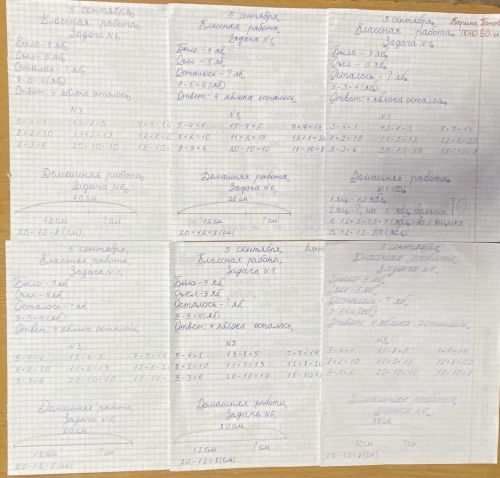 5 сентября
Классная работа.
Задача №1.
Было - 9 яб.
Съел - 5 яб.
Осталось - ? яб.
9-5=4(яб.)
Ответ: 4 яблока осталось.
№3
5-4=1 13-8=5 7+7=14
8+2=10 11+2=13 12+8=2
9-3=6 20-10=10 18-10=
Домашняя работа.
Задача №6.
20см
12см ?см
20-12=8(см)
5 сентября
Классная работа.
Задача №1.
Было - 9 яб.
Съел - 5 яб.
Осталось - ? яб.
9-5=4(яб.)
Ответ: 4 яблока осталось.
№3
5-4=1 13-8=5 7+7=14
8+2=10 11+2=13 12+8=20
9-3=6 20-10=10 18-10=8
Домашняя работа.
Задача №6.
20см
12см ?см
20-12=8(см)
5 сентября Карина
Классная работа.
Задача №1.
Было - 9 яб.
Съел - 5 яб.
Осталось - ? яб.
9-5=4(яб.)
Ответ: 4 яблока осталось.
№3
5-4=1 13-8=5 7+7=14
8+2=10 11+2=13 12+8=20
9-3=6 20-10=10
Домашняя работа.
5 сентября
Классная работа.
Задача №1.
Было - 9 яб.
Съел - 5 яб.
Осталось - ? яб.
9-5=4(яб.)
Ответ: 4 яблока осталось.
№3
5-4=1 13-8=5 7+7=14
8+2=10 11+2=13 12+8=2
9-3=6 20-10=10 18-10=
Домашняя работа.
Задача №6.
20см
12см ?см
20-12=8(см)
5 сентября
Классная работа.
Задача №1.
Было - 9 яб.
Съел - 5 яб.
Осталось - ? яб.
9-5=4(яб.)
Ответ: 4 яблока осталось.
№3
5-4=1 13-8=5 7+7=14
8+2=10 11+2=13 12+8=20
9-3=6 20-10=10 18-10=
Домашняя работа.
Задача №6.
20см
12см ?см
20-12=8(см)
5 сентября
Классная работа.
Задача №1.
Было - 9 яб.
Съел - 5 яб.
Осталось - ? яб.
9-5=4(яб.)
Ответ: 4 яблока осталось.
№3
5-4=1 13-8=5 7+7=14
8+2=10 11+2=13 12+8=20
9-3=6 20-10=10
Домашняя работа.
20см
12см ?см
20-12=8(см)